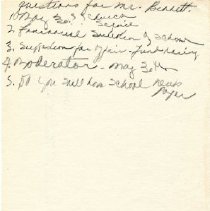 questions for Mr. Bennett
1. May 30? Church
Service
2. Financial Situation of School
3. Suggestions for Affair - fund raising
4. Moderator - May 30th
5. Do you sell our School News
Paper